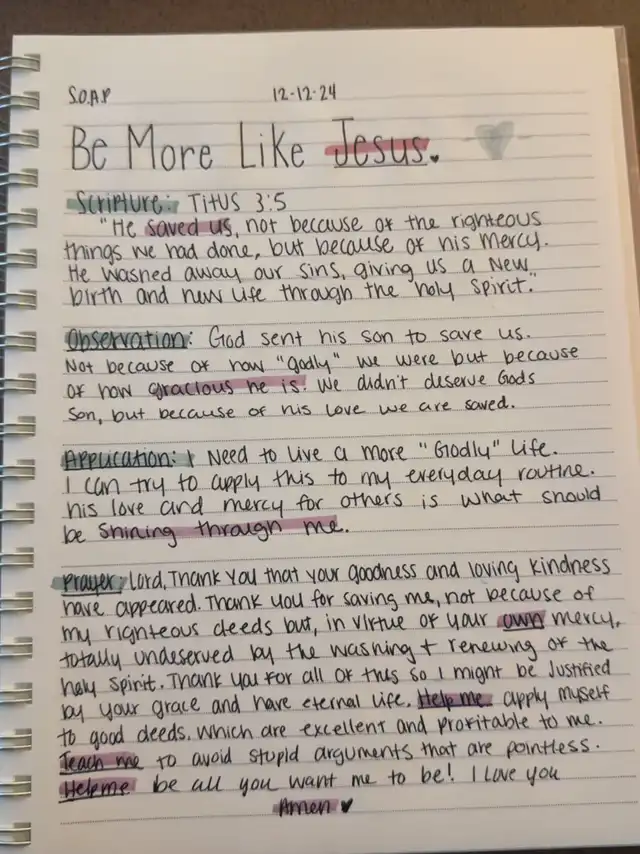 S.O.A.P 12-12-24
Be More Like Jesus.
Scripture: Titus 3:5
"He saved us, not because of the righteous
things we had done, but because of his mercy.
He washed away our sins, giving us a new
birth and new life through the holy spirit."
Observation: God sent his son to save us.
Not because of how "godly" we were but because
of how gracious he is. We didn't deserve Gods
son, but because of his love we are saved.
Application: I Need to live a more "Godly" life.
I can try to apply this to my everyday routine.
his love and mercy for others is what should
be shining through me.
Prayer: Lord, Thank you that your goodness and loving kindness
have appeared. Thank you for saving me, not because of
my righteous deeds but, in virtue of your own mercy,
totally undeserved by the washing + renewing of the
holy spirit. Thank you for all of this so I might be justified
by your grace and have eternal life. Help me apply myself
to good deeds. which are excellent and profitable to me.
Teach me to avoid stupid arguments that are pointless.
Help me be all you want me to be! I love you
Amen ♥